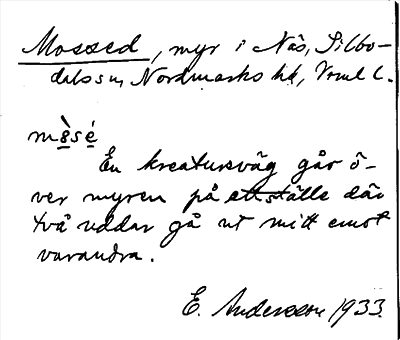 Mossed, myr i Näs, Silbo-
dals sn, Nordmarks hd, Vrml l.
mò̱̱sé̱
En kreatursväg går ö-
ver myren på ett ställe där
två uddar gå ut mitt emot
varandra.
E. Andersson 1933.